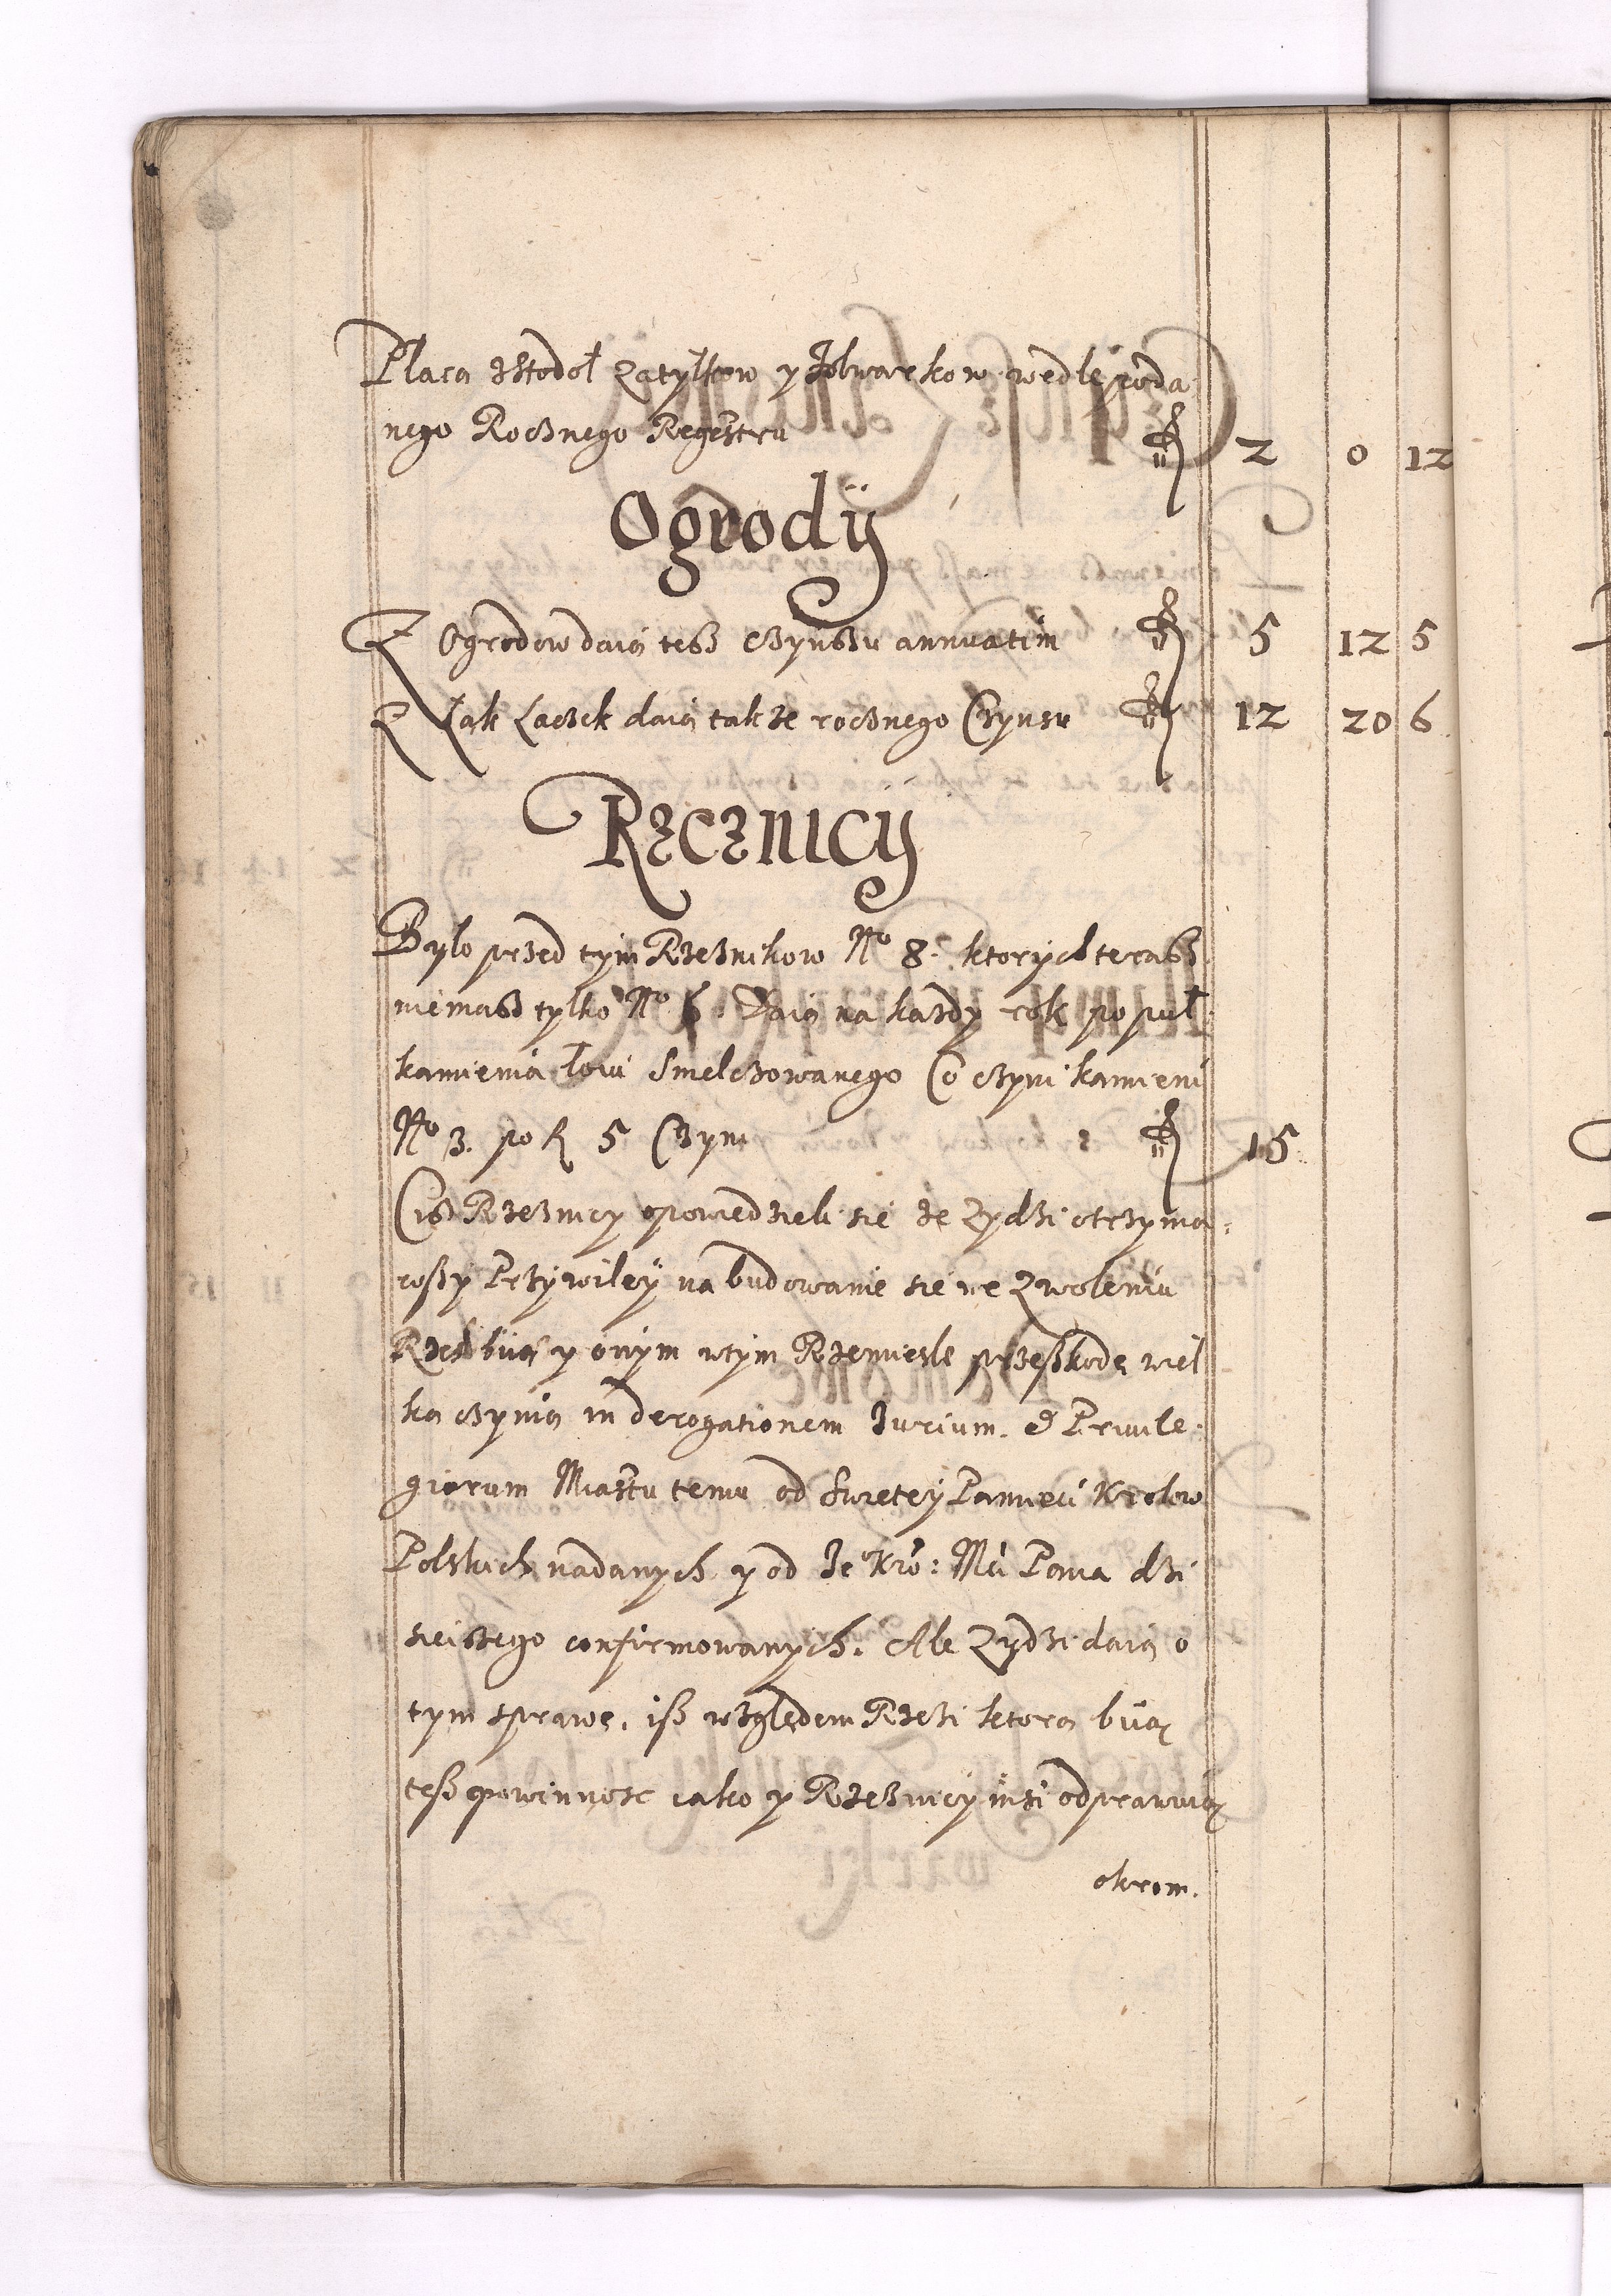 Płaca zstodoł Zatyłkow y Folwarkow wedle poda
nego Rocznego Regestru 2 0 12
Ogrody
Z Ogrodow daią tesz czynszu annuatim 5 12 5
Z Łąk Łączek daią takze rocznego Czynsu 12 20 6
Rzeznicy
Bylo przed tym Rzeznikow No 8. ktorych terasz
niemasz tylko No 6. Daią na kazdy rok po puł
kamienia łoiu Smelczowanego Co czyni kamieni
No 3. po f 5 Czyni 15
Cisz Rzeznicy opowiedzieli sie ze Zydzi otrzyma:
wszy Przywiley na budowanie sie we Zwoleniu
Rzezi biią y onym wtym Rzemiesle przeszkodę wiel
ką czynią in derogationem Jurium. & Priuile:
giorum Miastu temu od Swietey Pamieci Krolow
Polskich nadanych y od Je Kro: Mci Pana dzi
sieiszego confirmowanych. Ale Zydzi daią o
tym sprawę, isz względem Rzezi ktorą biią
tesz powinnosc iako y Rzeznicy insi odprawuią
okrom.